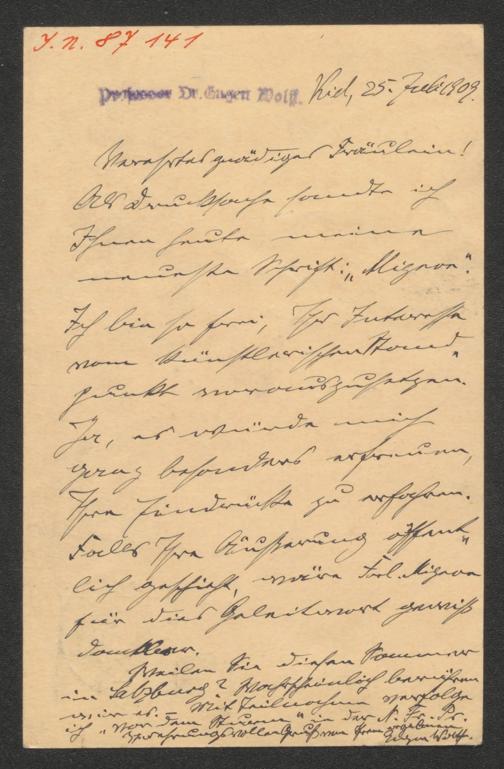 J. N. 87 141
Professor Dr. Eugen Wolff.
Kiel, 25. Juli 1909.
Verehrtes gnädiges Fräulein!
Als Drucksache sandte ich
Ihnen heute meine
neueste Schrift: „Mignon“.
Ich bin so frei, Ihr Interesse
vom künstlerischen Stand-
punkt vorauszusetzen.
Ja, es würde mich
ganz besonders erfreuen,
Ihre Eindrücke zu erfahren.
Falls Ihre Äußerung öffent-
lich geschieht, wäre Frl. Mignon
für dies Geleitwort gewiß
dankbar.
Weilen Sie diesen Sommer
in Salzburg? Wahrscheinlich berühren
wir es. Mit Teilnahme verfolge
ich „Vor dem Sturm“ in der N. Fr. Pr.
Verehrungsvollen Gruß von Ihrem ergebenen
Eugen Wolff.